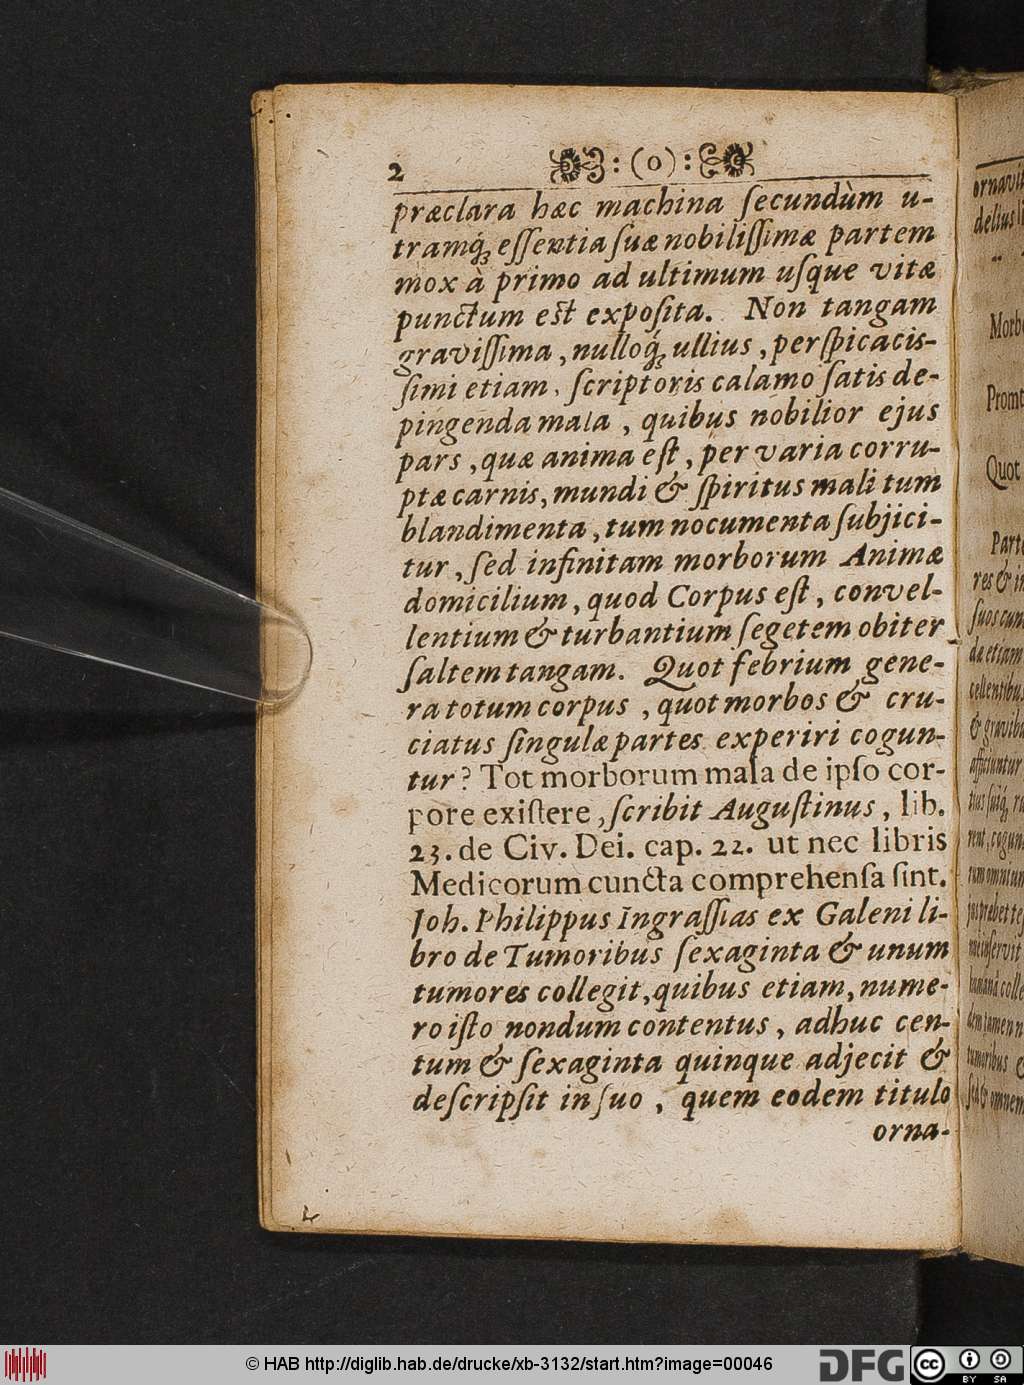 2 :(o):
præclara hæc machina ſecundùm u-
tramq́; eſſentia ſuæ nobiliſſimæ partem
mox à primo ad ultimum uſque vitæ
punctum eſt expoſita. Non tangam
graviſſima, nulloq́; ullius, perſpicacis-
ſimi etiam, ſcriptoris calamo ſatis de-
pingenda mala, quibus nobilior ejus
pars, quæ anima eſt, per varia corru-
ptæ carnis, mundi & ſpiritus mali tum
blandimenta, tum nocumenta ſubjici-
tur, ſed infinitam morborum Animæ
domicilium, quod Corpus eſt, convel-
lentium & turbantium ſegetem obiter
ſaltem tangam. Quot febrium gene-
ra totum corpus, quot morbos & cru-
ciatus ſingulæ partes experiri cogun-
tur? Tot morborum mala de ipſo cor-
pore exiſtere, ſcribit Auguſtinus, lib.
23. de Civ. Dei. cap. 22. ut nec libris
Medicorum cuncta comprehenſa ſint.
Joh. Philippus Ingraſſias ex Galeni li-
bro de Tumoribus ſexaginta & unum
tumores collegit, quibus etiam, nume-
ro iſto nondum contentus, adhuc cen-
tum & ſexaginta quinque adjecit &
deſcripſit in ſuo, quem eodem titulo
orna-
ornavit
delius
Morb
Promt
Quot
Part
res & in
ſuos cum
da etiam
cellentibus
& gravib
afficiuntur
© HAB http://diglib.hab.de/drucke/xb-3132/start.htm?image=00046
DFG
cc BY SA